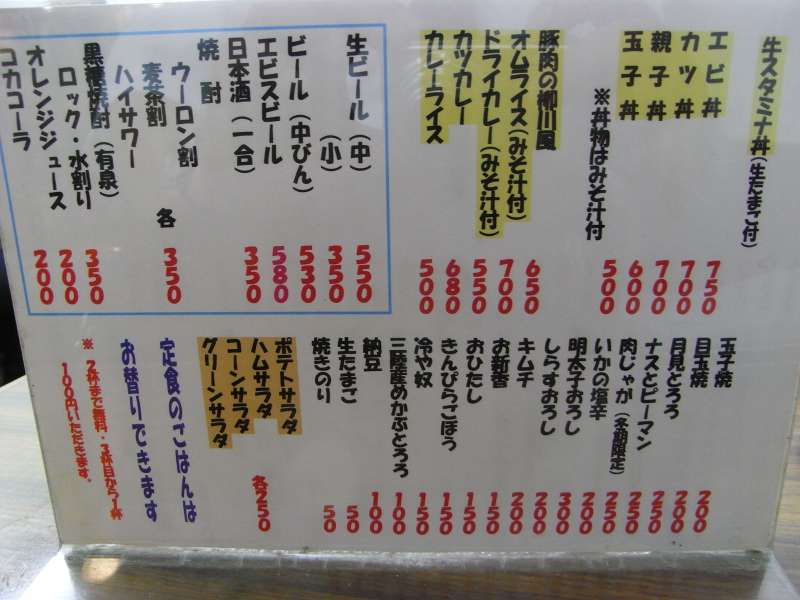 牛スタミナ丼(生たまご付) 750
エビ丼 700
カツ丼 700
親子丼 600
玉子丼 500
※丼物はみそ汁付
豚肉の柳川風 650
オムライス(みそ汁付) 700
ドライカレー(みそ汁付) 550
カツカレー 680
カレーライス 500
生ビール(中) 550
(小) 350
ビール(中びん) 530
エビスビール 580
日本酒(一合) 350
焼酎
ウーロン割
麦茶割 各 350
ハイサワー
黒糖焼酎(有泉)
ロック・水割り 350
オレンジジュース 200
コカコーラ 200
玉子焼 200
目玉焼 200
月見とろろ 250
ナスとピーマン 250
肉じゃが(冬期限定) 250
いかの塩辛 250
明太子おろし 300
しらすおろし 200
キムチ 200
お新香 150
おひたし 150
きんぴらごぼう 150
冷や奴 150
三陸産めかぶとろろ 100
納豆 100
生たまご 50
焼きのり 50
ポテトサラダ
ハムサラダ 各250
コーンサラダ
グリーンサラダ
定食のごはんは
お替りできます
※2杯まで無料・3杯目から1杯
100円いただきます。